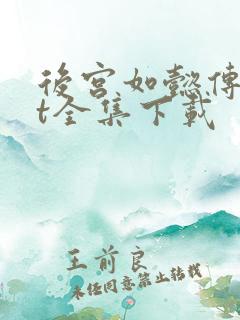 後宮如懿傳
t全集下載
王前良
未经同意禁止转载